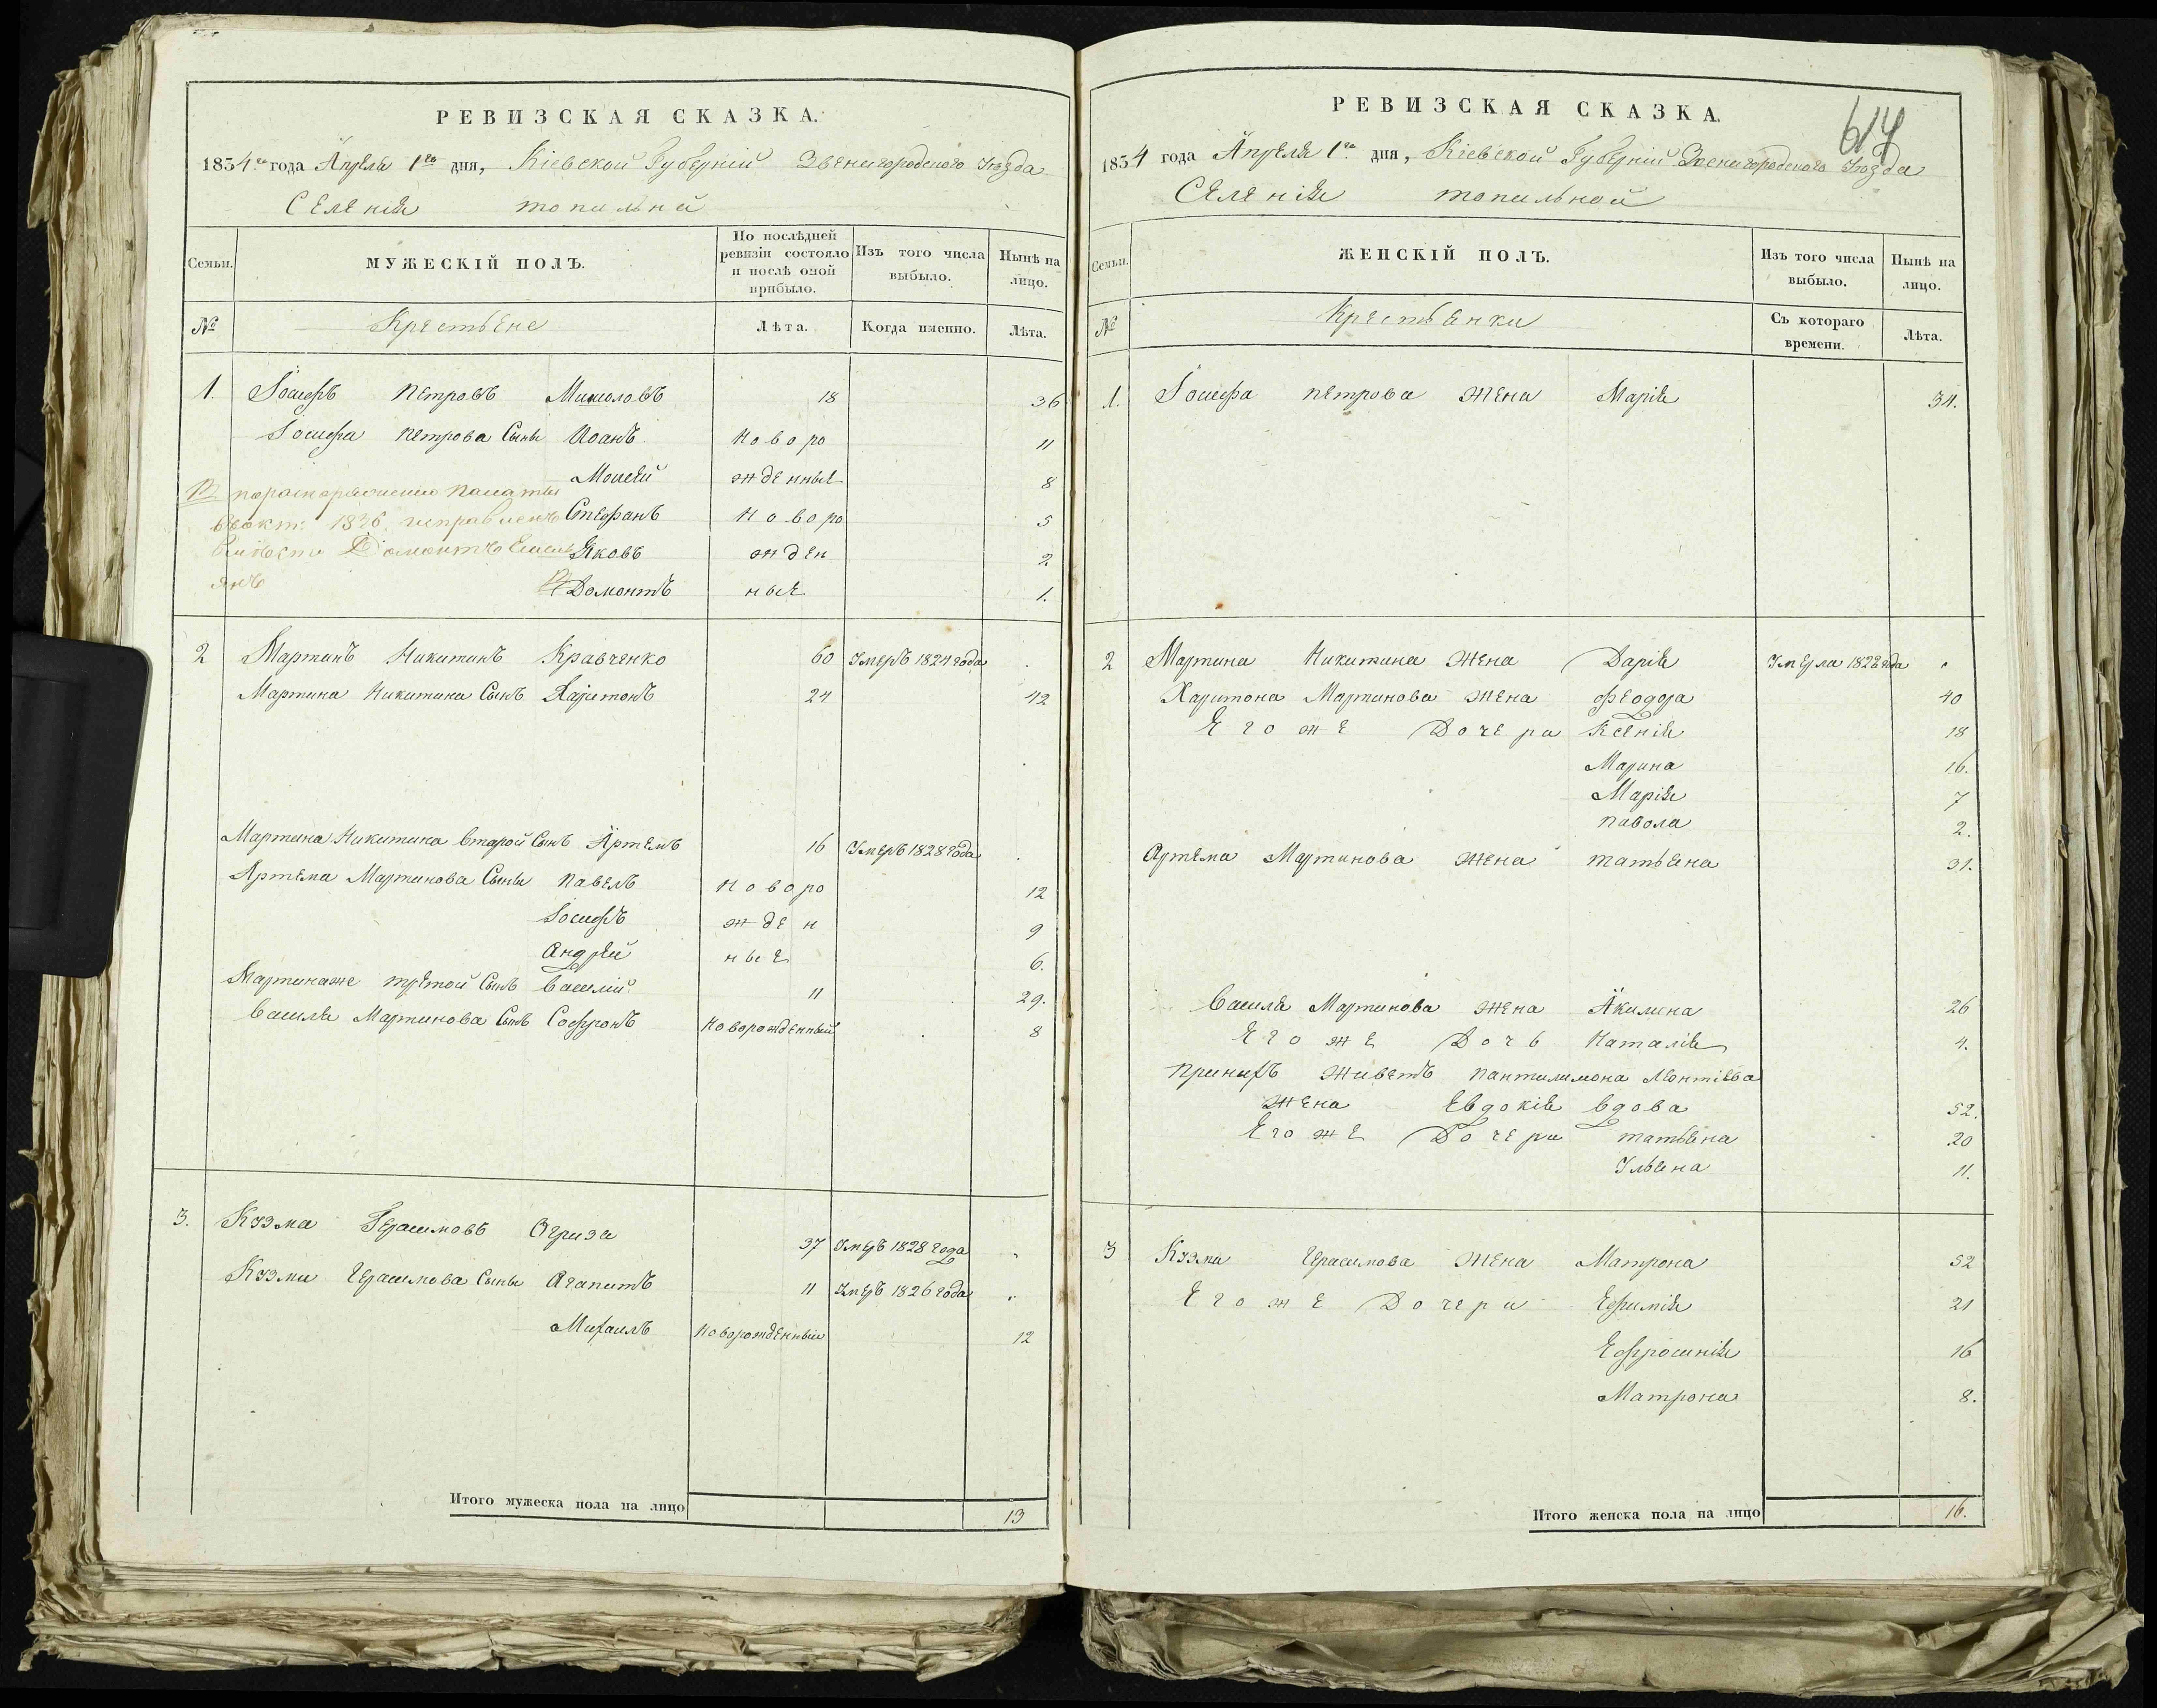 РЕВИЗСКАЯ СКАЗКА.
1834го года Апреля 1го дня, Кіевской Губерніи Звенигородского Уезда
Селенія топильной
Семьи.
МУЖЕСКІЙ ПОЛЪ.
По послѣдней ревизіи состояло и послѣ оной прибыло.
Изъ того числа выбыло.
Нынѣ на лицо.
№
Крестьяне
Лѣта.
Когда именно.
Лѣта.
1. Іосифъ Петровъ 18 36
Іосифа Петрова Сыны Иоанъ Новоро 11
Моисей жденные 8
Стефанъ Новоро 5
Яковъ жден 2
Домонтъ ные 1.
1836
Домонтъ
2 Мартинъ Никитинъ Кравченко 60 Умеръ 1824 года .
Мартина Никитина Сынъ Харитонъ 24 42
Мартина Никитина Второй Сынъ Артемъ 16 Умеръ 1828 года .
Артема Мартинова Сыны Павелъ Новоро 12
Іосифъ жден 9
Андрей ные 6.
Мартинаже третой Сынъ Василій 11 29.
Василя Мартинова Сынъ Софронъ Новорожденный 8
3. Кузма Герасимовъ Огриза 37 Умеръ 1828 года .
Кузми Герасимова Сыны Агапитъ 11 Умеръ 1826 года .
Михаилъ Новорожденный 12
Итого мужеска пола на лицо 13
614
РЕВИЗСКАЯ СКАЗКА.
1834 года Апреля 1го дня, Кіевской Губерніи Звенигородского Уезда
Селенія топильной
Семьи.
ЖЕНСКІЙ ПОЛЪ.
Изъ того числа выбыло.
Нынѣ на лицо.
№
Крестьянки
Съ котораго времени.
Лѣта.
1. Іосифа петрова жена Марія 34.
2 Мартина Никитина жена Дарія Умерла 1828 года .
Харитона Мартинова жена феодора 40
Егоже Дочери Ксенія 18
Марина 16.
Марія 7
павола 2.
Артема Мартинова жена татьяна 31.
Василя Мартинова жена Акилина 26
Егоже Дочь Наталія 4.
Принихъ живетъ пантилимона Леонтіева
жена Евдокія вдова 52.
Егоже Дочери татьяна 20
Ульяна 11.
3 Кузми Герасимова жена Матрона 52
Егоже Дочери Ефимія 21
Ефросинія 16
Матрона 8.
Итого женска пола на лицо 16.